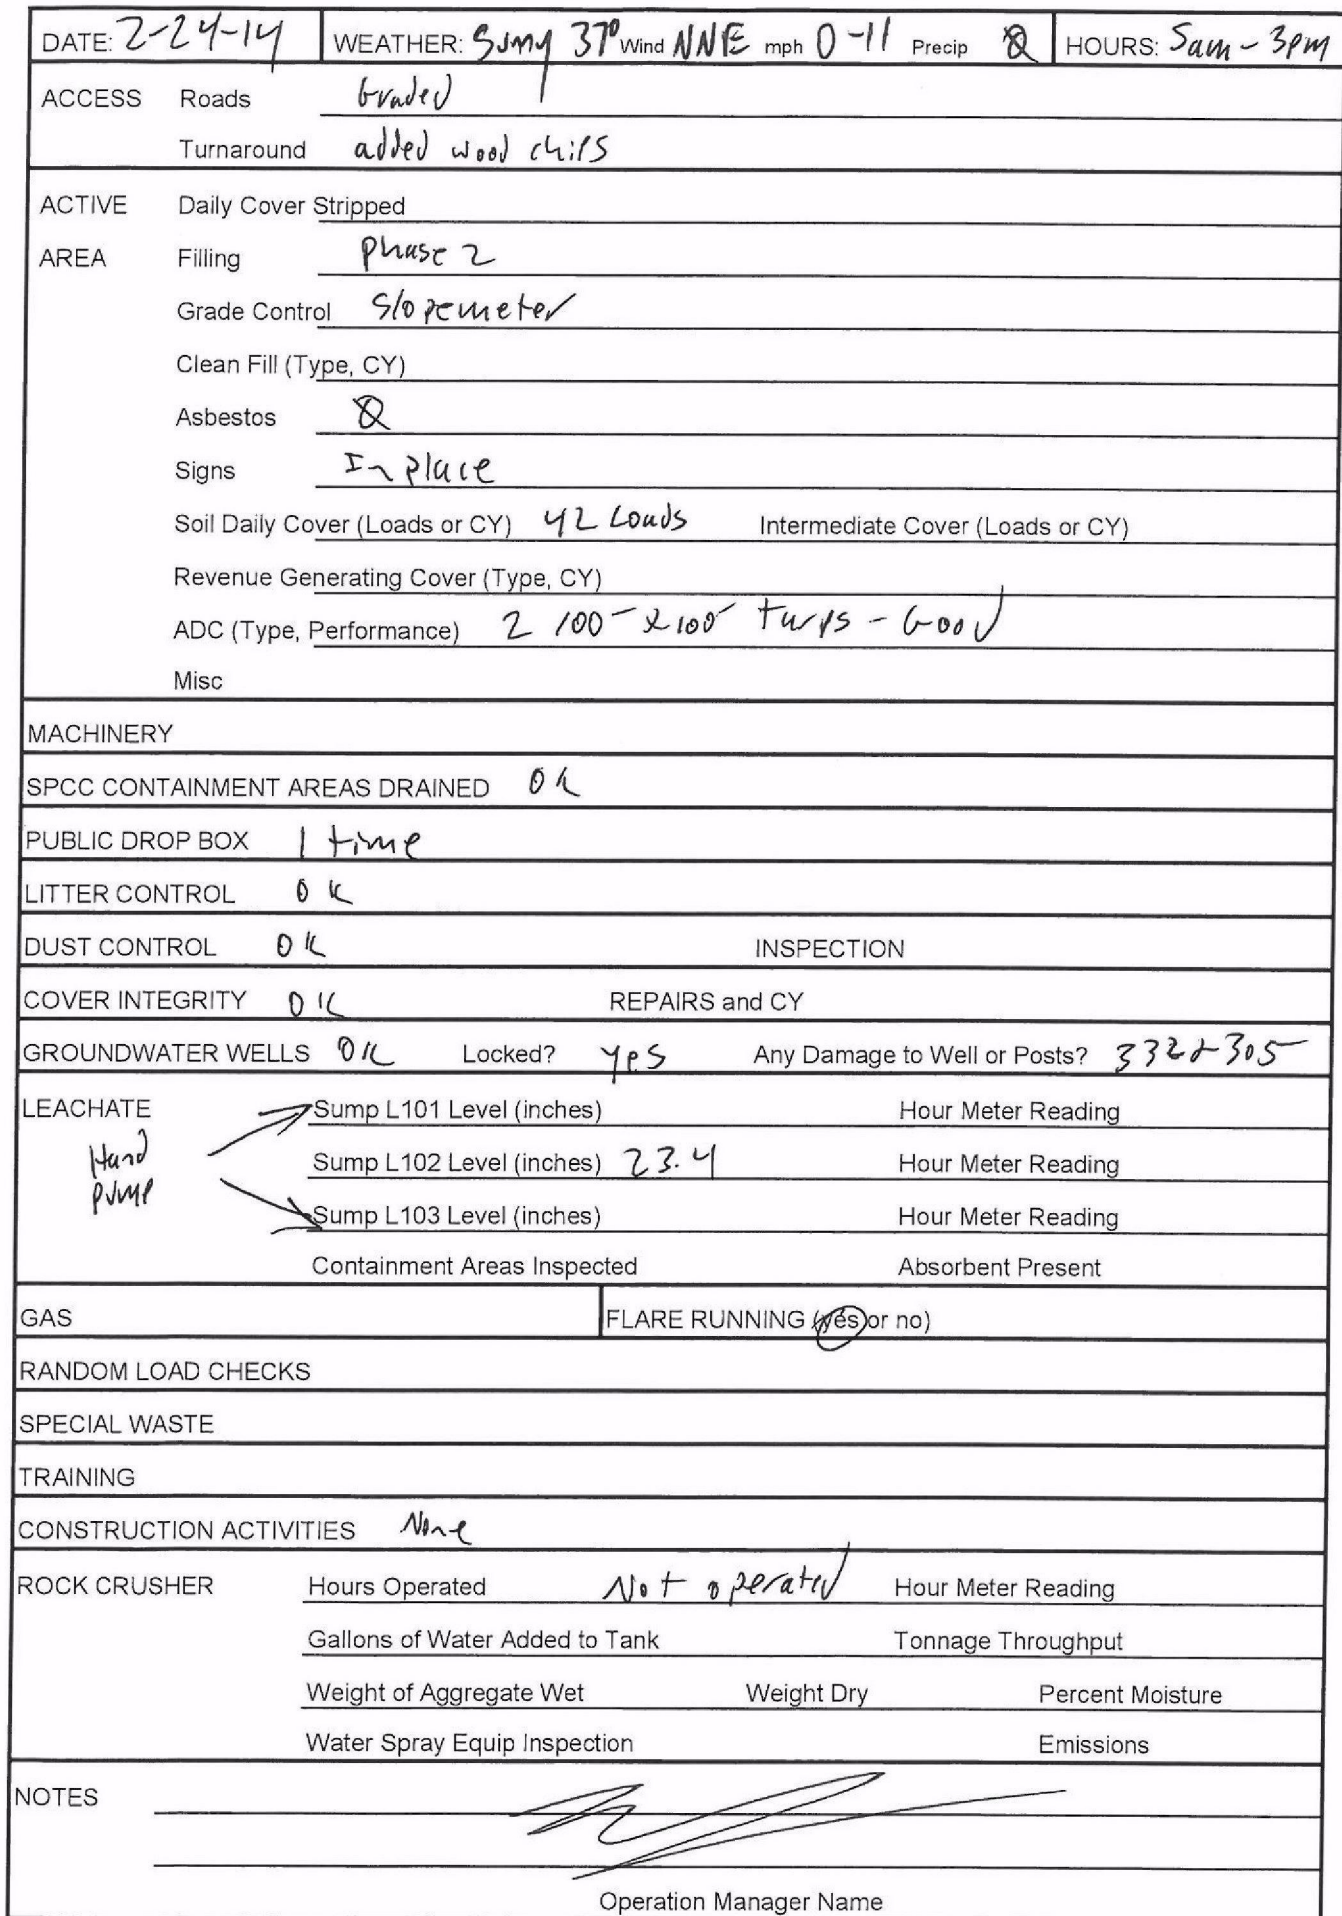 DATE: 2-24-14 WEATHER: Sunny 37° Wind NNE mph 0-11 Precip Ø HOURS: 5am - 3pm
ACCESS Roads Graded
Turnaround added wood chips
ACTIVE Daily Cover Stripped
AREA Filling Phase 2
Grade Control Slopemeter
Clean Fill (Type, CY)
Asbestos Ø
Signs In place
Soil Daily Cover (Loads or CY) 42 Loads Intermediate Cover (Loads or CY)
Revenue Generating Cover (Type, CY)
ADC (Type, Performance) 2 100' x 100' tarps - Good
Misc
MACHINERY
SPCC CONTAINMENT AREAS DRAINED OK
PUBLIC DROP BOX 1 time
LITTER CONTROL OK
DUST CONTROL OK INSPECTION
COVER INTEGRITY OK REPAIRS and CY
GROUNDWATER WELLS OK Locked? yes Any Damage to Well or Posts? 332 & 305
LEACHATE Sump L101 Level (inches) Hour Meter Reading
Hand Sump L102 Level (inches) 23.4 Hour Meter Reading
pump Sump L103 Level (inches) Hour Meter Reading
Containment Areas Inspected Absorbent Present
GAS FLARE RUNNING (yes or no)
RANDOM LOAD CHECKS
SPECIAL WASTE
TRAINING
CONSTRUCTION ACTIVITIES None
ROCK CRUSHER Hours Operated Not operated Hour Meter Reading
Gallons of Water Added to Tank Tonnage Throughput
Weight of Aggregate Wet Weight Dry Percent Moisture
Water Spray Equip Inspection Emissions
NOTES
Operation Manager Name